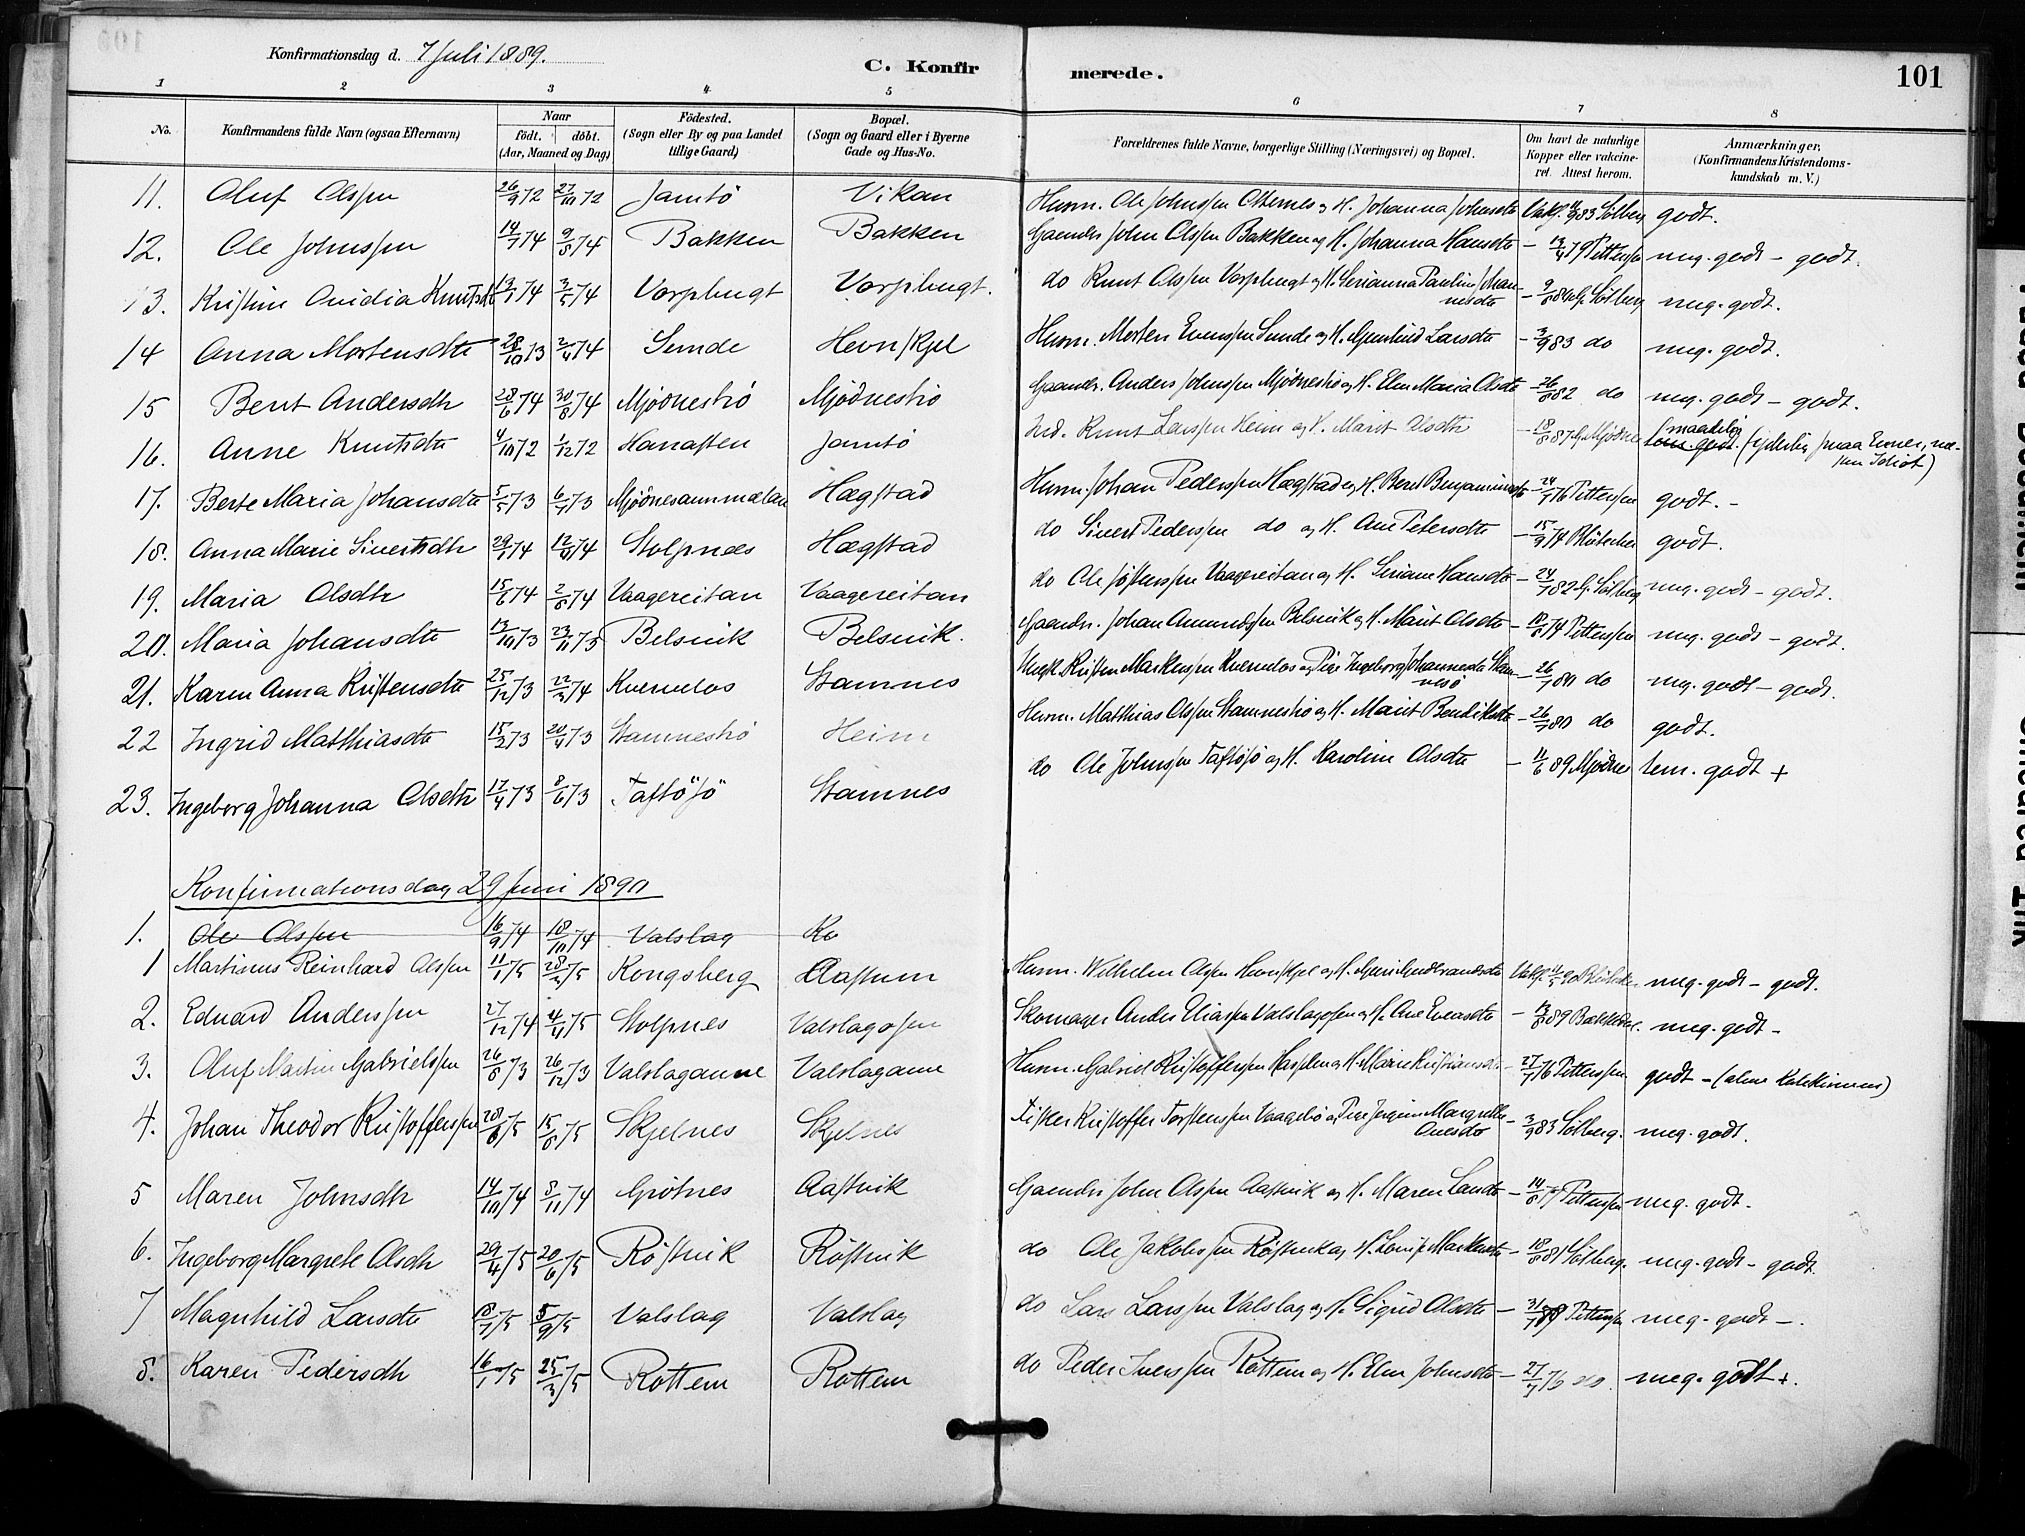 Konfirmationsdag d. 7 Juli 1889.
C. Konfirmerede.
101
1 2 3 4 5 6 7 8
No.
Konfirmandens fulde Navn (ogsaa Efternavn)
Naar
födt. döbt.
(Aar, Maaned og Dag)
Födested.
(Sogn eller By og paa Landet
tillige Gaard)
Bopæl.
(Sogn og Gaard eller i Byerne
Gade og Hus-No.
Forældrenes fulde Navne, borgerlige Stilling (Næringsvei) og Bopæl.
Om havt de naturlige
Kopper eller vakcine-
ret. Attest herom.
Anmærkninger.
(Konfirmandens Kristendoms-
kundskab m. V.)
11. Oluf Olssen 26/9 72 27/10 72 Jamtö Vikan Husm. Ole Johnssen og H. Johanna Johnsdtr Vakc. 83 Solberg godt.
12. Ole Johnssen 14/7 74 9/8 74 Bakken Bakken Gaardbr John Olssen Bakken og H. Johanna Hansdtr – 79 Pettersen meg. godt – godt.
13. Kristine Ovidia Knutsdtr 74 3/5 74 Vorpbugt Vorpbugt. do Knut Olssen Vorpbugt og H. Serianna Pauline Johan-
nesdtr – 9/8 Solberg meg. godt.
14 Anna Mortensdtr 28/10 73 2/4 74 Sunde Hevnskjel Husm. Morten Evenssen Sunde og H. Gunhild Larsdtr – 3/9 83 do meg. godt.
15 Berit Andersdtr 28/6 74 30/8 74 Mjödneströ Mjödneströ Gaardbr. Anders Johnssen Mjödneströ og H. Elen Maria Olsdtr – 26/6 82 do meg. godt – godt.
16. Anne Knutsdtr 4/10 72 1/12 72 Hanasten Jamtö Ind. Knut Larssen Heim og H. Marit Olsdtr – 18/8 87 Mjödne maadelig
tem. godt. (yderlig smaa Evner, næ-
sten Idiot)
17. Berte Maria Johansdtr 5/5 73 6/7 73 Hægstad Husm. Johan Pederssen Hægstad og H. Berit Benjaminsdtr – 24/7 76 Pettersen godt. –
18. Anna Marie Sivertsdtr 29/1 74 12/4 74 Stolpnæs Hægstad do Sivert Pederssen do og H. Ane Petersdtr – 15/9 74 Blötecher godt.
19. Maria Olsdtr 15/6 74 2/8 74 Vaagereitan Vaagereitan do Ole Vaagereitan og H. Seriane Hansdtr – 24/7 82 Solberg meg. godt – godt.
20. Maria Johansdtr 13/10 73 23/11 73 Belsvik Belsvik. Gaardbr. Johan Amundssen Belsvik og H. Marit Olsdtr – 10/8 74 Pettersen meg. godt – godt.
21. Karen Anna Kristensdtr 25/12 73 22/3 74 Kvernelos Stamnes Ungk. Kristen Markussen Kvernelos og Pige Ingeborg Johannesdtr Stam-
nesö – 26/7 80 do meg. godt – godt.
22 Ingrid Matthiasdtr 15/2 73 20/4 73 Stamneströ Heim Husm. Matthias Olssen Stamneströ og H. Marit Bendiksdtr – 26/7 80 do godt.
23. Ingeborg Johanna Olsdtr 17/4 73 8/6 73 Taftösjö Stamnes do Ole Johnssen Taftösjö og H. Karoline Olsdtr – 11/6 89 Mjödne tem. godt +
Konfirmationsdag 29 Juni 1890
1. Ole Olssen 16/9 74 18/10 74 Valslag
1 Martinus Reinhard Olssen 11/1 75 28/3 75 Kongsberg Aastum Husm. Wilhelm Olssen Hevnskjel og H. Vakc. 90 meg. godt – godt.
2. Edvard Anderssen 27/12 74 4/4 75 Stolpnes Valslagosen Skomager Anders Eliassen Valslagosen og H. Ane Evensdtr – 13/8 89 meg. godt –
3. Oluf Martin Gabrielssen 26/8 73 26/12 73 Valslaganne Valslaganne Husm. Gabriel Kristofferssen og H. Marie Kristiansdtr – 27/7 76 Pettersen godt –
4. Johan Theodor Kristofferssen 28/6 75 15/8 75 Skjelnes Skjelnes Fisker Kristoffer Torstenssen Vaagebö og Pige Margrethe
Olesdtr – 3/9 83 Solberg. meg. godt.
5 Maren Johnsdtr 14/10 74 8/11 74 Grötnes Aastvik Gaardbr John Olssen Aastvik og H. Maren Larsdtr – 14/8 77 Pettersen meg. godt.
6. Ingeborg Margrete Olsdtr 29/4 75 20/6 75 Röstvik Röstvik do Ole Jakobssen Röstvik og H. Lovise Markusdtr – 18/8 81 Solberg. meg. godt – godt.
7 Magnhild Larsdtr 18/7 75 5/9 75 Valslag Valslag do Lars Larssen Valslag og H. Sigrid Olsdtr – 31/7 Pettersen meg. godt – .
8. Karen Pedersdtr 16/1 75 25/3 75 Rottem Rottem do Peder Iverssen Rottem og H. Elen Johnsdtr – 27/7 76 do. meg. godt +.